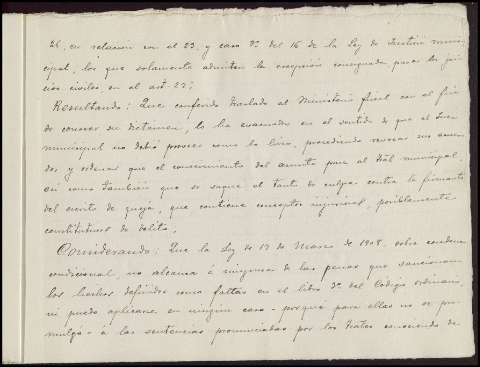 26, en relación con el 23, y caso 3º del 16 de la Ley de Justicia muni-
cipal, los que solamente admiten la excepción consignada, para los jui-
cios civiles, en el art. 22;
Resultando: Que conferido traslado al Ministerio fiscal con el fin
de conocer su dictamen, lo ha evacuado en el sentido de que el Juez
municipal no debió proveer como lo hizo, procediendo revocar su acuer-
do y ordenar que el conocimiento del asunto pase al Tbal municipal,
así como también que se saque el tanto de culpa contra la firmante
del escrito de queja, que contiene conceptos injuriosos, posiblemente
constitutivos de delito.
Considerando: Que la Ley de 17 de Marzo de 1908, sobre condena
condicional, no alcanza á ninguna de las penas que sancionan
los hechos definidos como faltas en el libro 3º del Código ordinario,
ni puede aplicarse en ningún caso - porque para ellas no se pro-
mulgó - á las sentencias pronunciadas por los Tbales conociendo de